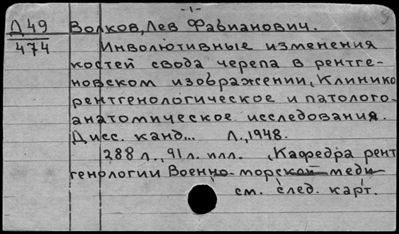 -1-
Д 49 Волков, Лев Фабианович.
474 Инволютивные изменения
костей свода черепа в рентге-
новском изображении, Клинико
рентгенологическое и патолого-
анатомическое исследования.
Дисс. канд... Л., 1948.
288 л., 91 л. илл. , Кафедра рент
генологии Военно-морской меди
см. след. карт.